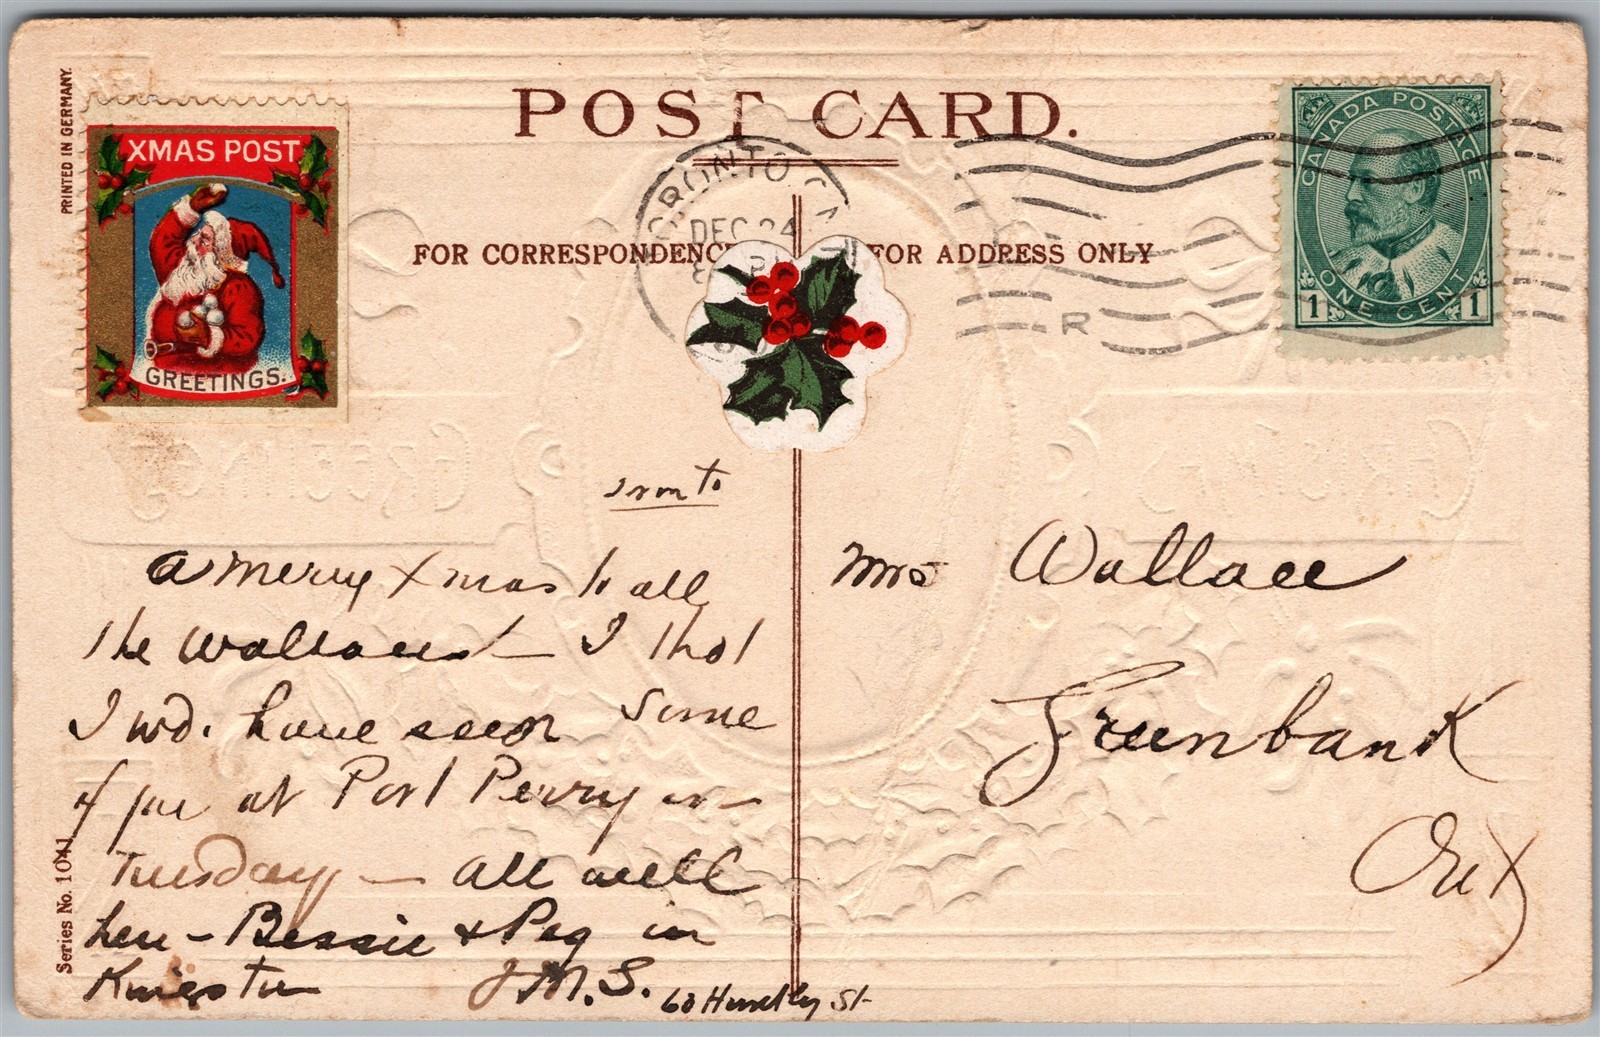 PRINTED IN GERMANY.
POST CARD.
XMAS POST
GREETINGS.
TORONTO
DEC 24
FOR CORRESPONDENC
FOR ADDRESS ONLY
R
CANADA POSTAGE
1 ONE CENT 1
GREETINGS
CHRISTMAS
Toronto
A merry Xmas to all
the Wallaces - I thot
I wd. have seen some
of you at Port Perry on
Tuesday - All well
here - Bessie & Peg in
Kingston J.M.S.
60 Huntley St
Mrs Wallace
Greenbank
Ont
Series No. 1041